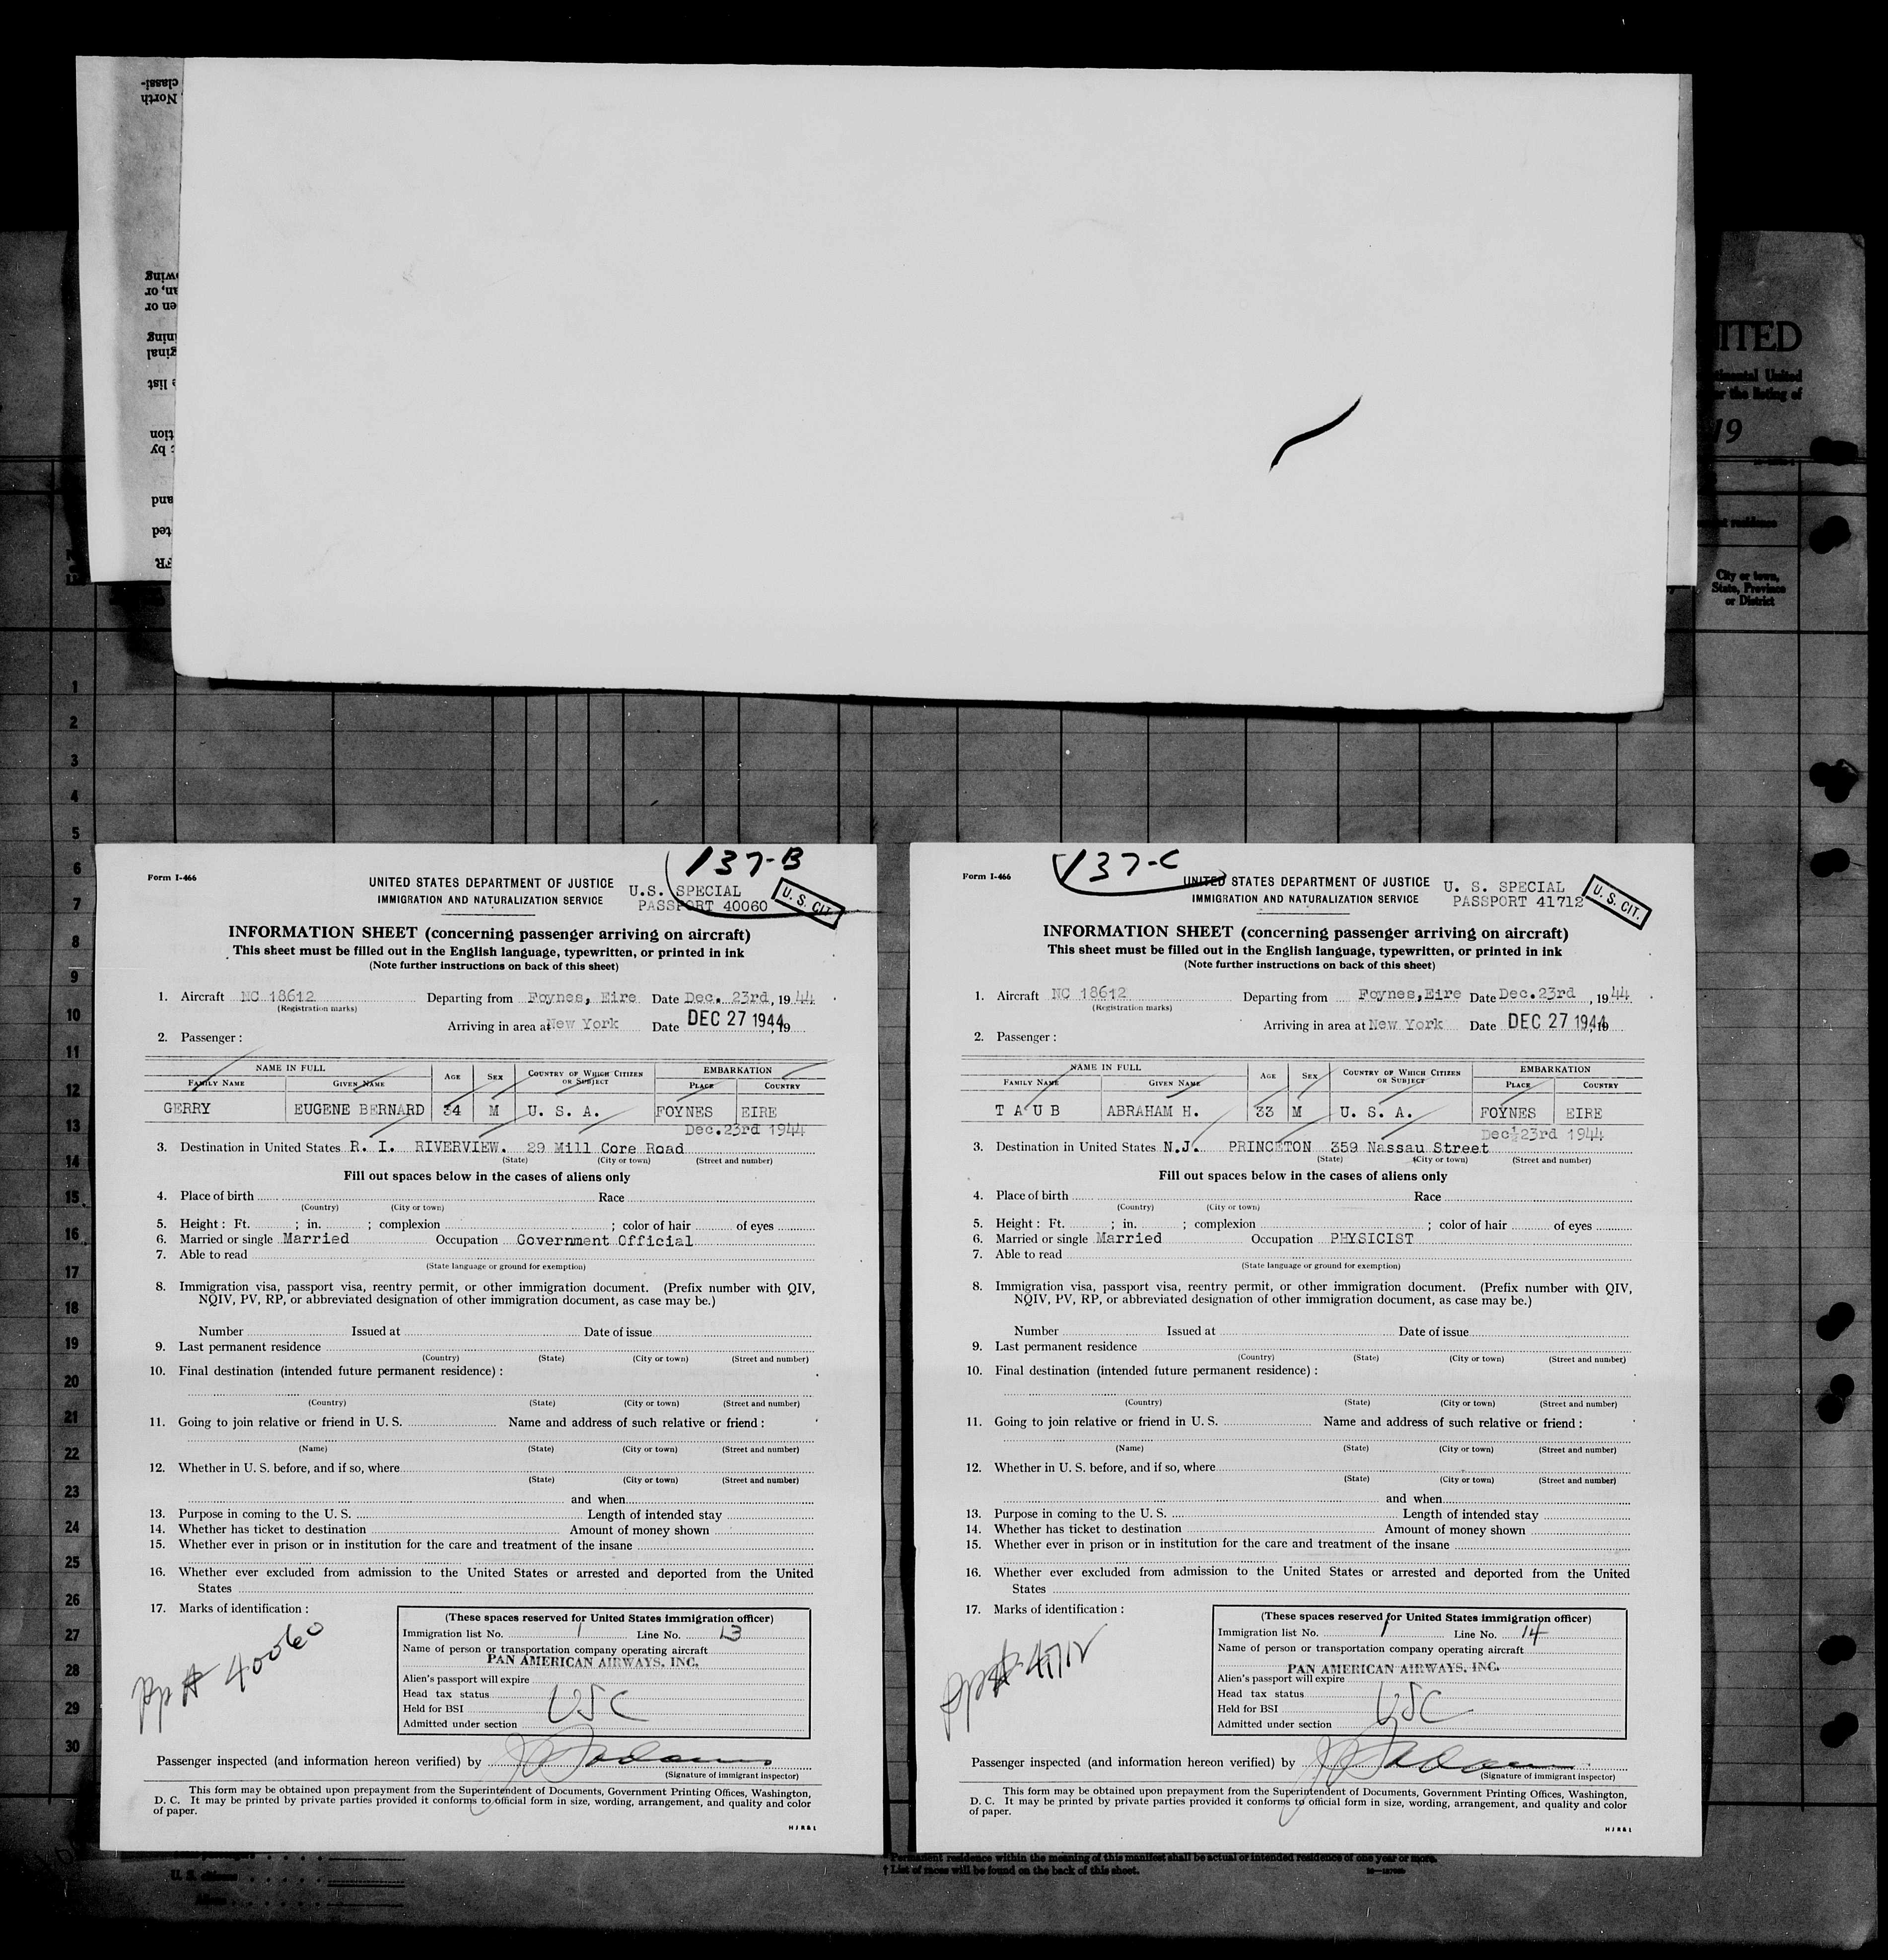 classi-
North
wing
an, or
en or
ining
ginal
e list
tion
by
and
ted
FR
ITED
tinental United
r the listing of
19
residence
City or town,
State, Province
or District
1
2
3
4
5
6
7
8
9
10
11
12
13
14
15
16
17
18
19
20
21
22
23
24
25
26
27
28
29
30
137-B
Form I-466
UNITED STATES DEPARTMENT OF JUSTICE
IMMIGRATION AND NATURALIZATION SERVICE
U.S. SPECIAL
PASSPORT 40060
U. S. CIT.
INFORMATION SHEET (concerning passenger arriving on aircraft)
This sheet must be filled out in the English language, typewritten, or printed in ink
(Note further instructions on back of this sheet)
1. Aircraft NC 18612 Departing from Foynes, Eire Date Dec. 23rd, 1944
(Registration marks)
Arriving in area at New York Date DEC 27 1944, 19
2. Passenger :
NAME IN FULL AGE SEX COUNTRY OF WHICH CITIZEN OR SUBJECT EMBARKATION
FAMILY NAME GIVEN NAME PLACE COUNTRY
GERRY EUGENE BERNARD 34 M U. S. A. FOYNES EIRE
Dec.23rd 1944
3. Destination in United States R. I. RIVERVIEW. 29 Mill Core Road
(State) (City or town) (Street and number)
Fill out spaces below in the cases of aliens only
4. Place of birth Race
(Country) (City or town)
5. Height : Ft. ; in. ; complexion ; color of hair of eyes
6. Married or single Married Occupation Government Official
7. Able to read
(State language or ground for exemption)
8. Immigration visa, passport visa, reentry permit, or other immigration document. (Prefix number with QIV,
NQIV, PV, RP, or abbreviated designation of other immigration document, as case may be.)
Number Issued at Date of issue
9. Last permanent residence
(Country) (State) (City or town) (Street and number)
10. Final destination (intended future permanent residence) :
(Country) (State) (City or town) (Street and number)
11. Going to join relative or friend in U. S. Name and address of such relative or friend :
(Name) (State) (City or town) (Street and number)
12. Whether in U. S. before, and if so, where
(State) (City or town) (Street and number)
and when
13. Purpose in coming to the U. S. Length of intended stay
14. Whether has ticket to destination Amount of money shown
15. Whether ever in prison or in institution for the care and treatment of the insane
16. Whether ever excluded from admission to the United States or arrested and deported from the United
States
17. Marks of identification :
PP# 40060
(These spaces reserved for United States immigration officer)
Immigration list No. 1 Line No. 13
Name of person or transportation company operating aircraft
PAN AMERICAN AIRWAYS, INC.
Alien's passport will expire
Head tax status
Held for BSI USC
Admitted under section
Passenger inspected (and information hereon verified) by
(Signature of immigrant inspector)
This form may be obtained upon prepayment from the Superintendent of Documents, Government Printing Offices, Washington,
D. C. It may be printed by private parties provided it conforms to official form in size, wording, arrangement, and quality and color
of paper.
H J R & L
137-C
Form I-466
UNITED STATES DEPARTMENT OF JUSTICE
IMMIGRATION AND NATURALIZATION SERVICE
U. S. SPECIAL
PASSPORT 41712
U. S. CIT.
INFORMATION SHEET (concerning passenger arriving on aircraft)
This sheet must be filled out in the English language, typewritten, or printed in ink
(Note further instructions on back of this sheet)
1. Aircraft NC 18612 Departing from Foynes,Eire Date Dec.23rd, 1944
(Registration marks)
Arriving in area at New York Date DEC 27 1944, 19
2. Passenger :
NAME IN FULL AGE SEX COUNTRY OF WHICH CITIZEN OR SUBJECT EMBARKATION
FAMILY NAME GIVEN NAME PLACE COUNTRY
T A U B ABRAHAM H. 33 M U. S. A. FOYNES EIRE
Dec 23rd 1944
3. Destination in United States N.J. PRINCETON 359 Nassau Street
(State) (City or town) (Street and number)
Fill out spaces below in the cases of aliens only
4. Place of birth Race
(Country) (City or town)
5. Height : Ft. ; in. ; complexion ; color of hair of eyes
6. Married or single Married Occupation PHYSICIST
7. Able to read
(State language or ground for exemption)
8. Immigration visa, passport visa, reentry permit, or other immigration document. (Prefix number with QIV,
NQIV, PV, RP, or abbreviated designation of other immigration document, as case may be.)
Number Issued at Date of issue
9. Last permanent residence
(Country) (State) (City or town) (Street and number)
10. Final destination (intended future permanent residence) :
(Country) (State) (City or town) (Street and number)
11. Going to join relative or friend in U. S. Name and address of such relative or friend :
(Name) (State) (City or town) (Street and number)
12. Whether in U. S. before, and if so, where
(State) (City or town) (Street and number)
and when
13. Purpose in coming to the U. S. Length of intended stay
14. Whether has ticket to destination Amount of money shown
15. Whether ever in prison or in institution for the care and treatment of the insane
16. Whether ever excluded from admission to the United States or arrested and deported from the United
States
17. Marks of identification :
PP# 41712
(These spaces reserved for United States immigration officer)
Immigration list No. 1 Line No. 14
Name of person or transportation company operating aircraft
PAN AMERICAN AIRWAYS, INC.
Alien's passport will expire
Head tax status
Held for BSI USC
Admitted under section
Passenger inspected (and information hereon verified) by
(Signature of immigrant inspector)
This form may be obtained upon prepayment from the Superintendent of Documents, Government Printing Offices, Washington,
D. C. It may be printed by private parties provided it conforms to official form in size, wording, arrangement, and quality and color
of paper.
H J R & L
Permanent residence within the meaning of this manifest shall be actual or intended residence of one year or more.
† List of races will be found on the back of this sheet.
U. S. citizens